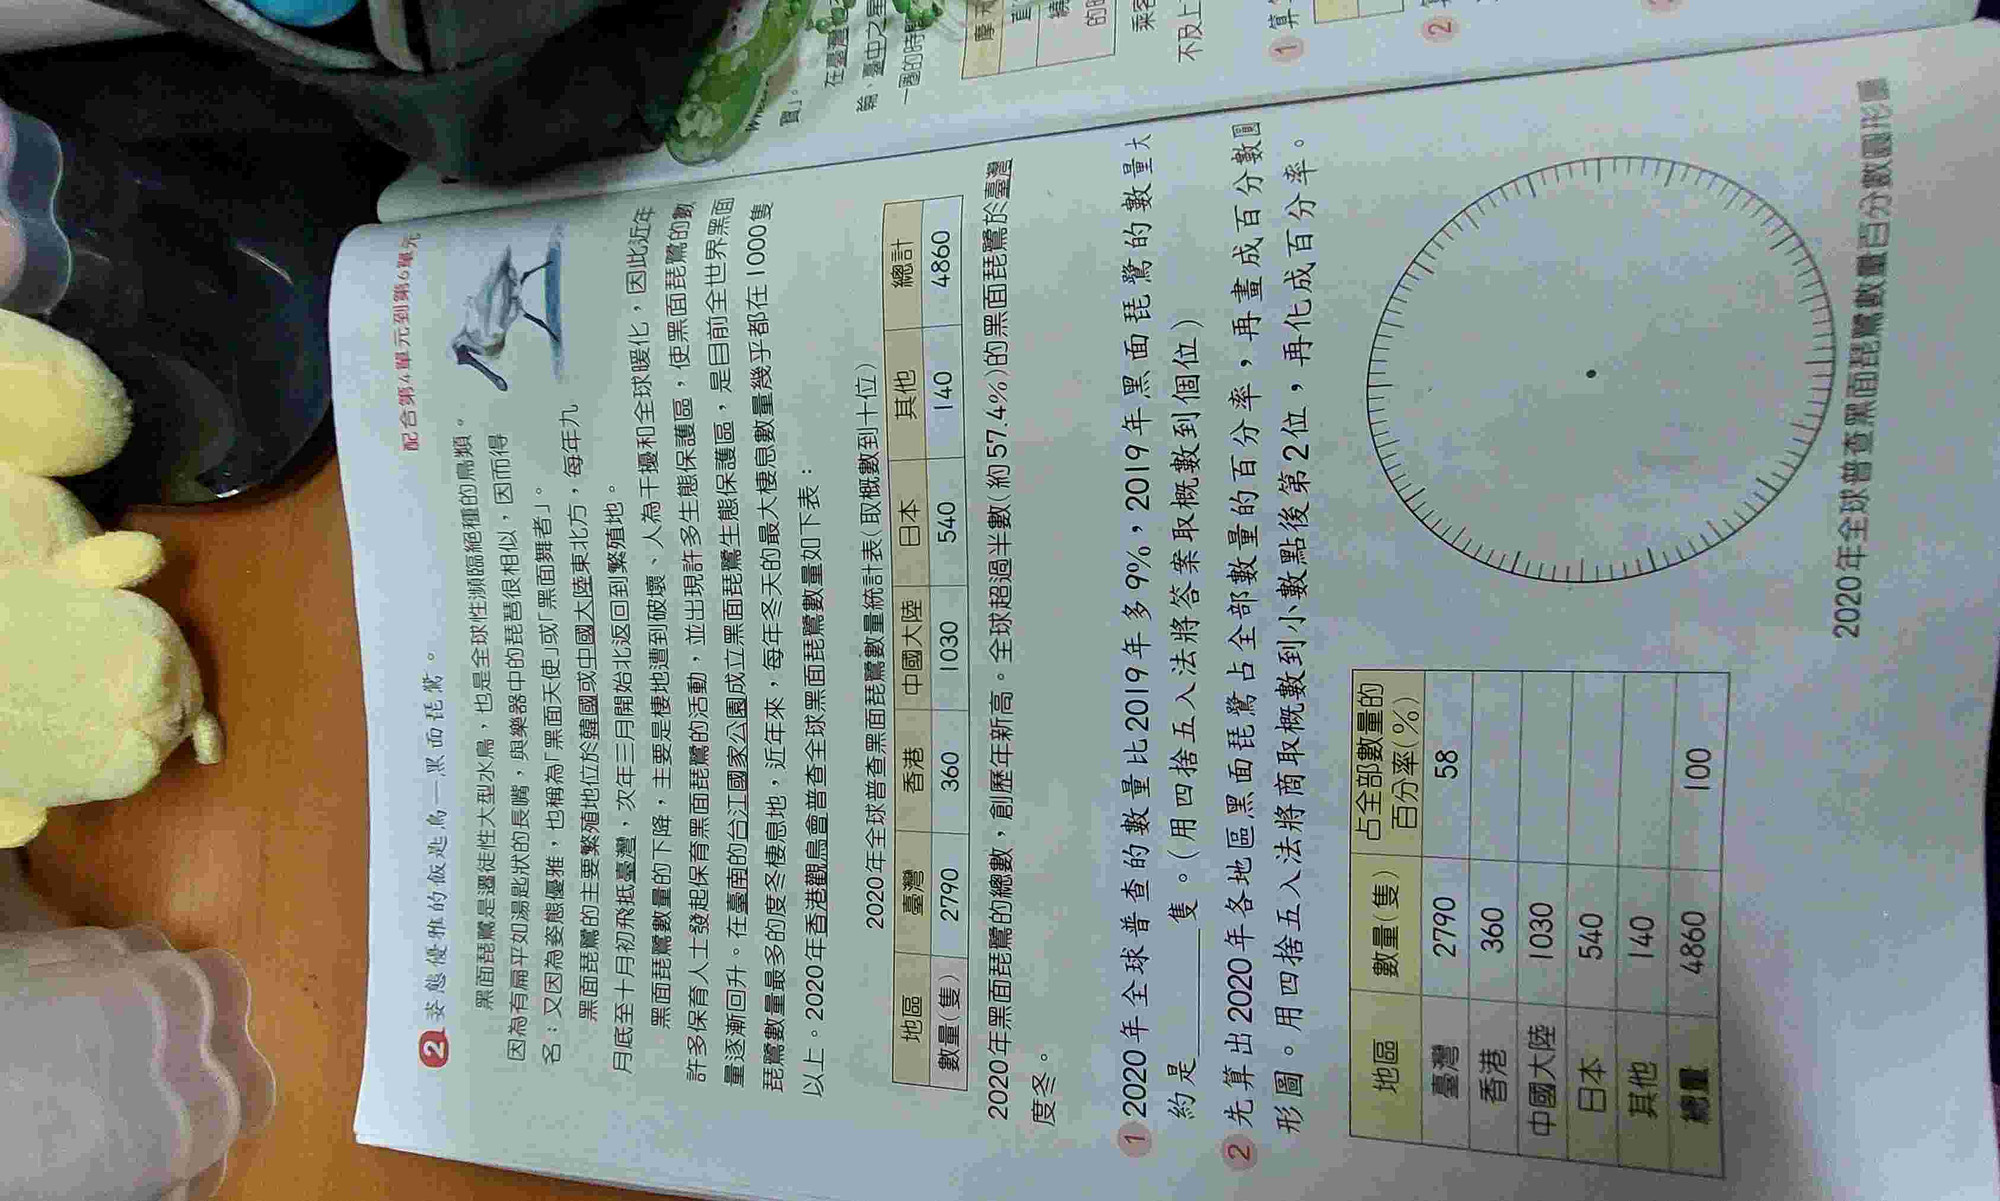 配合第4單元到第6單元
2 姿態優雅的飯匙鳥—黑面琵鷺。
黑面琵鷺是遷徙性大型水鳥，也是全球性瀕臨絕種的鳥類。
因為有扁平如湯匙狀的長嘴，與樂器中的琵琶很相似，因而得
名；又因為姿態優雅，也稱為「黑面天使」或「黑面舞者」。
黑面琵鷺的主要繁殖地位於韓國或中國大陸東北方，每年九
月底至十月初飛抵臺灣，次年三月開始北返回到繁殖地。
黑面琵鷺數量的下降，主要是棲地遭到破壞、人為干擾和全球暖化，因此近年
許多保育人士發起保育黑面琵鷺的活動，並出現許多生態保護區，使黑面琵鷺的數
量逐漸回升。在臺南的台江國家公園成立黑面琵鷺生態保護區，是目前全世界黑面
琵鷺數量最多的度冬棲息地，近年來，每年冬天的最大棲息數量幾乎都在1000隻
以上。2020年香港觀鳥會普查全球黑面琵鷺數量如下表：
2020年全球普查黑面琵鷺數量統計表(取概數到十位)
地區 臺灣 香港 中國大陸 日本 其他 總計
數量(隻) 2790 360 1030 540 140 4860
2020年黑面琵鷺的總數，創歷年新高。全球超過半數(約57.4%)的黑面琵鷺於臺灣
度冬。
1 2020年全球普查的數量比2019年多9%，2019年黑面琵鷺的數量大
約是______隻。(用四捨五入法將答案取概數到個位)
2 先算出2020年各地區黑面琵鷺占全部數量的百分率，再畫成百分數圓
形圖。用四捨五入法將商取概數到小數點後第2位，再化成百分率。
地區 數量(隻) 占全部數量的百分率(%)
臺灣 2790 58
香港 360
中國大陸 1030
日本 540
其他 140
總量 4860 100
2020年全球普查黑面琵鷺數量百分數圓形圖
寶」。
在臺灣
輪、臺中之星
一圈的時間
摩天
直
繞
的時
乘客
不及上
1 算
2